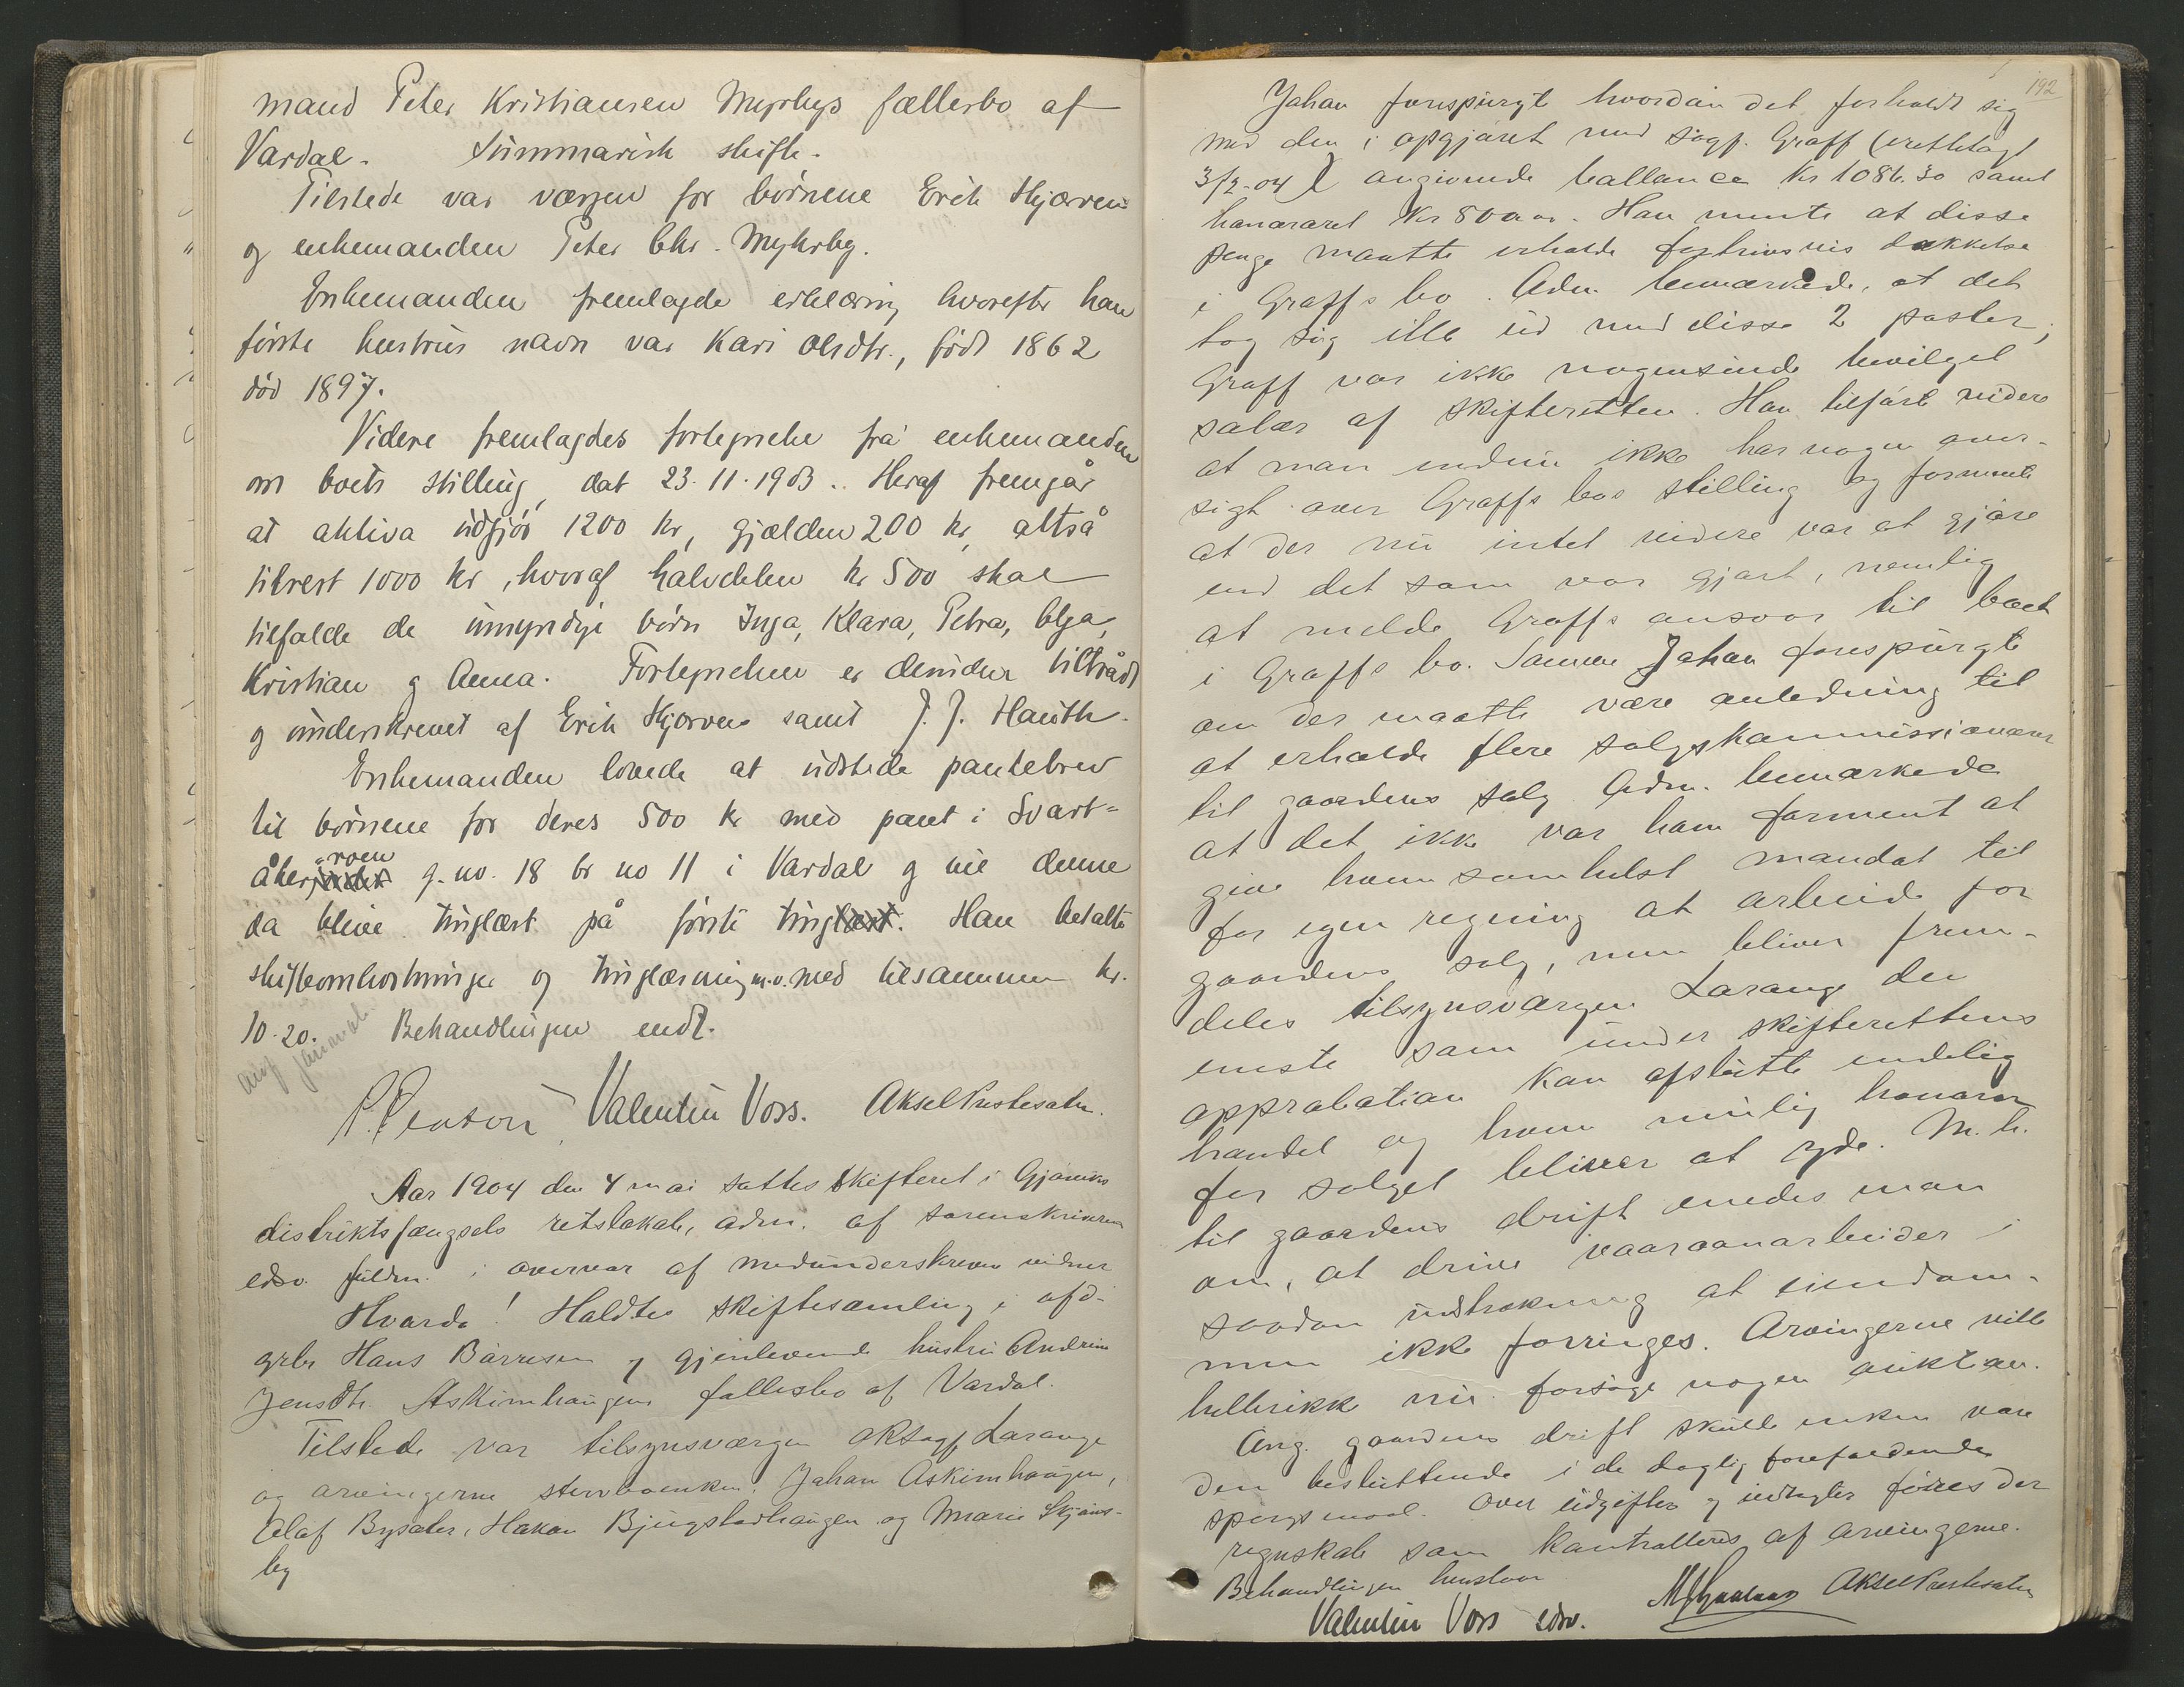 mand Peter Kristiansen Myrbys fællesbo af
Vardal. Summarisk skifte.
Tilstede var værgen for børnene Erik Skjærven
og enkemanden Peter Chr. Myhrby.
Enkemanden fremlagde erklæring, hvorefter hans
første hustrus navn var Kari Olsdtr., født 1862
død 1897.
Videre fremlagdes fortegnelse fra enkemanden
om boets stilling, dat 23.11.1903. Heraf fremgår
at aktiva udgjør 1200 kr, gjælden 200 kr, altså
tilrest 1000 kr, hvoraf halvdelen kr 500 skal
tilfalde de umyndige børn Inga, Klara, Petra, Olga,
Kristian og Anna. Fortegnelsen er desuden tiltrådt
og underskrevet af Erik Skjærven samt J. J. Hauth.
Enkemanden lovede at udstede pantebrev
til børnene for deres 500 kr med pant i Svart-
åkerroen g. no. 18 br no 11 i Vardal og vil denne
da blive tinglæst på første ting. Han betalte
skifteomkostninger og tinglæsning m.v. med tilsammen kr.
10.20. Behandlingen endt.
Valentin Voss. Aksel Prestesæter.
Aar 1904 den 4 mai sattes skifteret i Gjøviks
distriktsfængsels retslokale, adm. af sorenskriveren
edsv. fuldm. i overvær af medunderskrevne vidner
Hvorda! Holdtes skiftesamling i afd.
grbr Hans Børresen og gjenlevende hustru Andrine
Jensdtr. Askimhaugens fællesbo af Vardal.
Tilstede var tilsynsværgen O.R.sagf. Lorange
og arvingerne stervboenken, Johan Askimhaugen,
Olaf Bysæter, Hakon Bjugstadhaugen og Marie Skjøns-
by
192
Johan forespurgte hvordan det forholdt sig
med den i opgjøret med sagf. Graff (fretlagt
3/2-04) angivende ballance kr 1086.30 samt
honoraret kr 500.00. Han mente at disse
penge maatte erholde fortrinsvis dækkelse
i Graffs bo. Adm. bemærkede, at det
tog sig ille ud med disse 2 poster;
Graff var ikke nogensinde bevilget
salær af skifteretten. Han tilføit videre
at man endnu ikke har nogen over-
sigt over Graffs bos stilling og formente
at der nu intet videre var at gjøre
end det som var gjort, nemlig
at melde Graffs ansvar til boet
i Graffs bo. Samme Johan forespurgte
om der maatte være anledning til
at erholde flere salgskommissionærer
til gaardens salg. Adm. bemærkede
at det ikke var ham forment at
give hvemsomhelst mandat til
for egen regning at arbeide for
gaardens salg, men bliver frem-
deles tilsynsværgen Lorange den
eneste som under skifterettens
approbation kan afslutte endelig
handel og hvem mulig honorar
for salget bliver at yde. M. h.
til gaardens drift enedes man
om, at drive vaaraanarbeider i
saadan udstrækning at eiendom-
men ikke forringes. Arvingerne vilde
hellerikke nu forsøge nogen auktion.
Ang. gaardens drift skulle enken være
den besluttende i de daglig forefaldende
spørgsmaal. Over udgifter og indtægter føres der
regnskab som kontrolleres af arvingerne.
Behandlingen henstaar
Valentin Voss edsv. Aksel Prestesæter